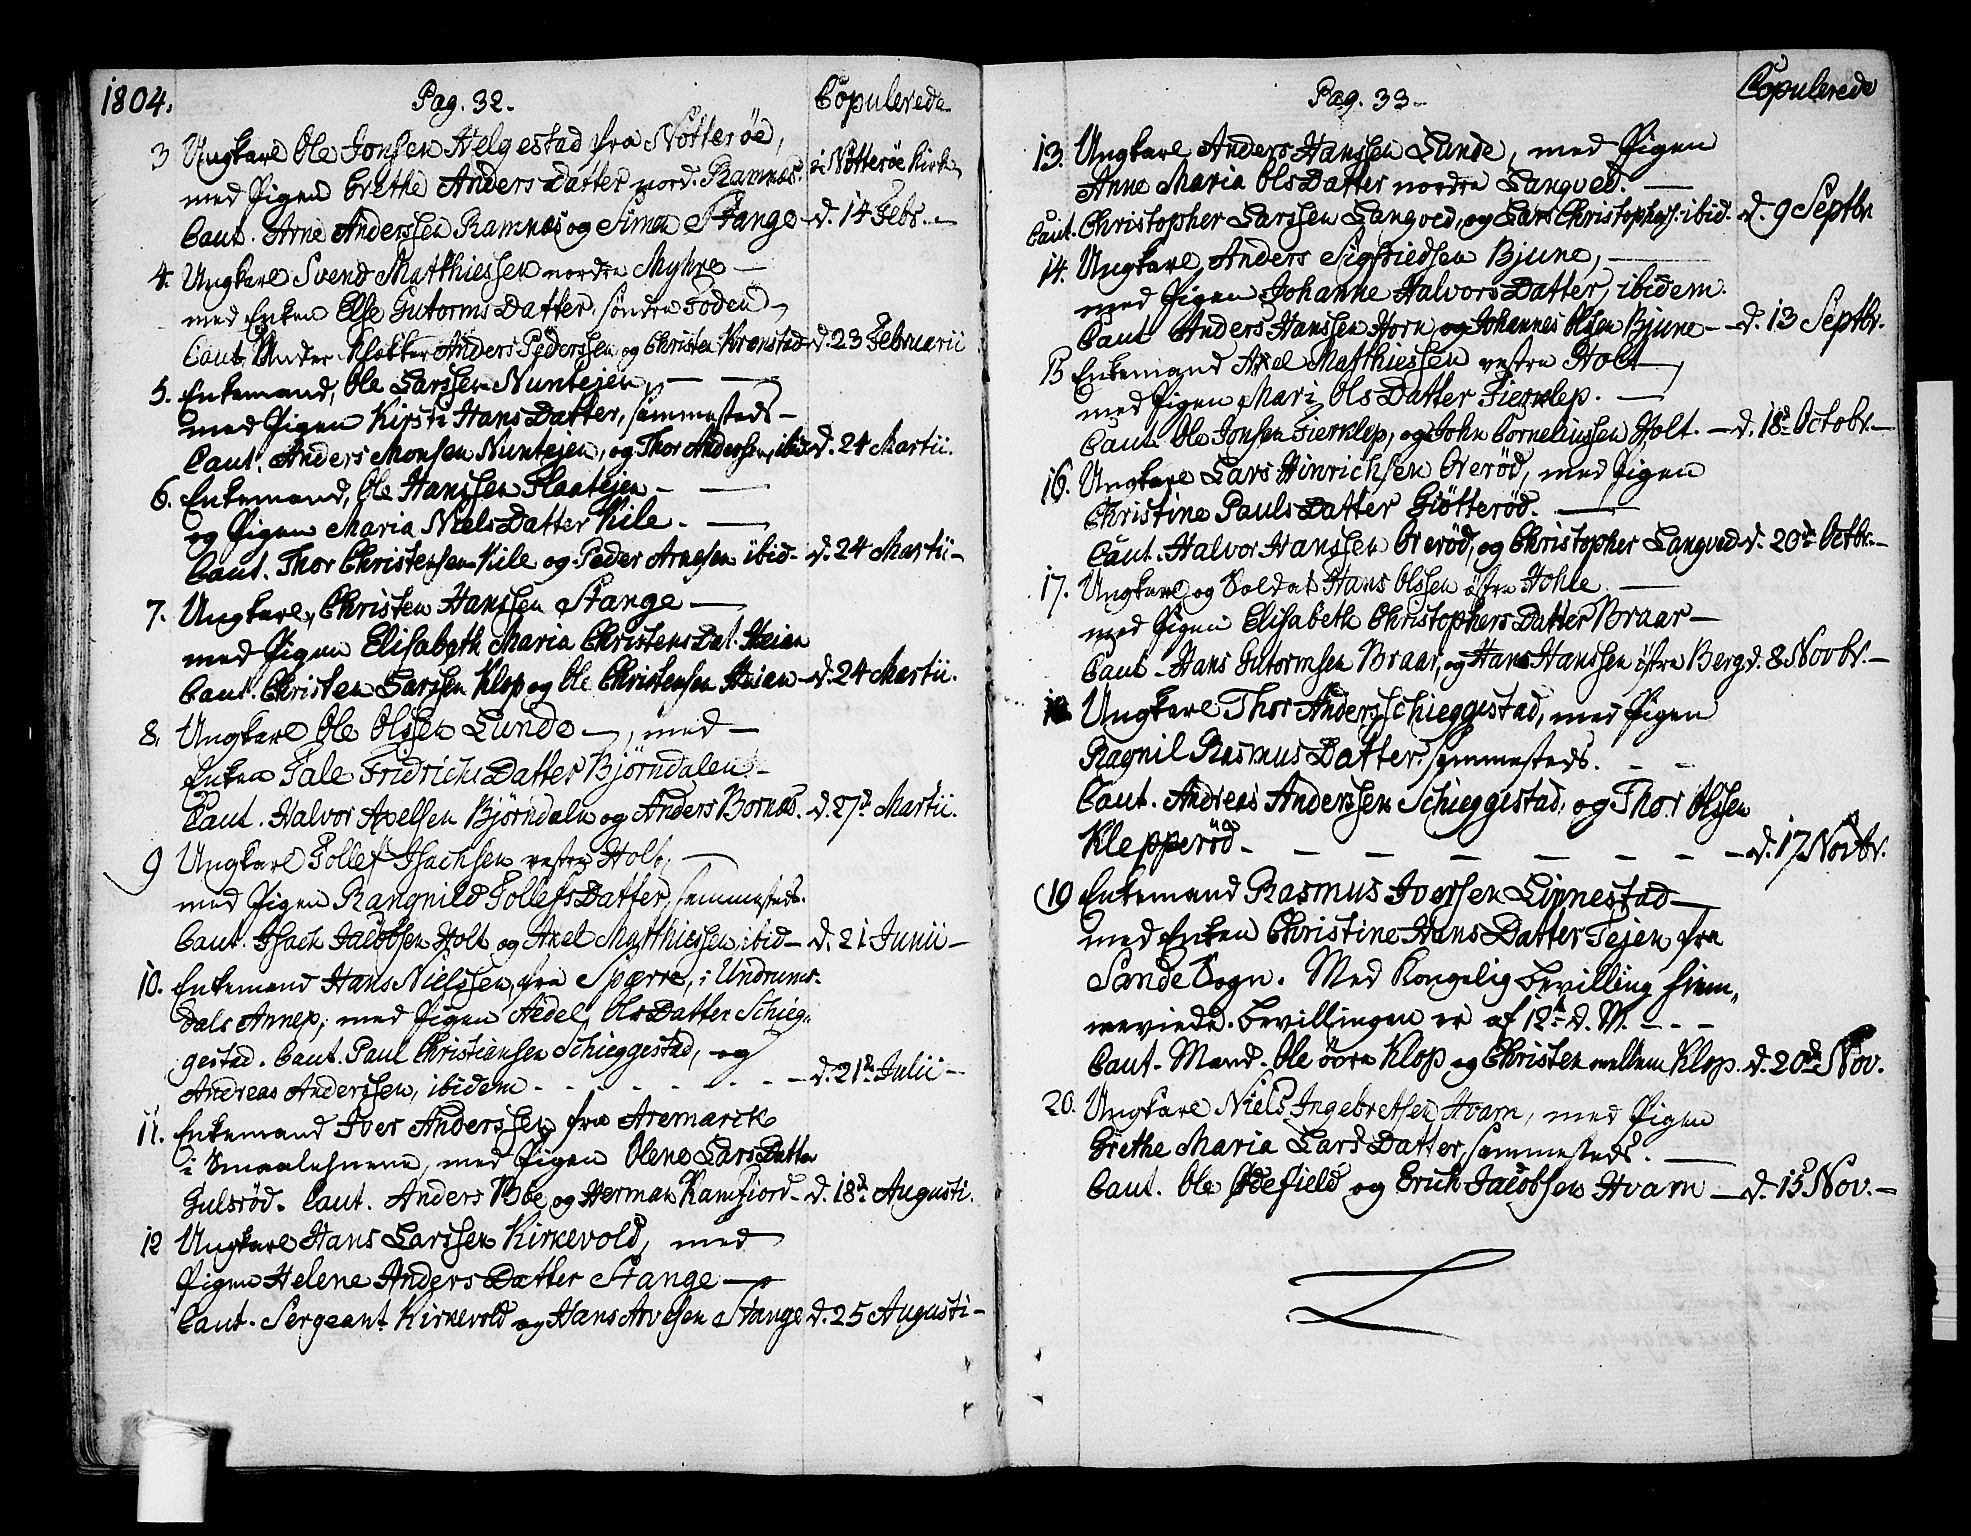 1804.
Pag. 32.
Copulerede
3 Ungkarl Ole Jonsen Helgestad fra Nötteröe,
med Pigen Grethe Anders Datter nord. Ramnæs. i Nötteröe Kirke
Caut. Arne Anderssen Ramnæs og Simen Stange d. 14 Febr.
4. Ungkarl Svend Matthiessen nordre Myhre
med Enken Else Gutorms Datter söndre Foden
Caut. Under Klokker Anders Pederssen og Christen Kronstad d. 23 Februarii
5. Enkemand, Ole Larssen Nuntejen,
med Pigen Kirsti Hans Datter, sammesteds
Caut. Anders Monsen Nuntejen, og Thor Anderssen, ibid d. 24 Martii.
6. Enkemand, Ole Hanssen Flaatejen
og Pigen Maria Niels Datter Kile.
Caut. Thor Christensen Kile og Peder Arnesen ibid. d. 24 Martii
7. Ungkarl, Christen Hanssen Stange
med Pigen Elisabeth Maria Christens Dat. Heian
Caut. Christen Larssen Klop og Ole Christensen Heian d. 24 Martii.
8. Ungkarl Ole Olssen Lunde, med
Enken Tale Fridrichs Datter Björndalen
Caut. Halvor Axelsen Björndaln og Anders Bornæs. d. 27de Martii.
9 Ungkarl Tollef Isachsen vestre Holt,
med Pigen Rangnild Tollefs Datter, sammesteds.
Caut. Isach Jacobsen Holt og Axel Matthiessen, ibid d. 21 Junii
10. Enkemand Hans Nielssen, fra Spærre, i Undrums-
dals Annex, med Pigen Aedel Ols Datter Schieg-
gestad. Caut. Paul Christiansen Schieggestad, og
Andreas Anderssen, ibidem d. 21de Julii
11. Enkemand Iver Anderssen fra Aremarck
i Smaalehnene, med Pigen Olene Lars Datter
Gulsröd. Caut. Anders Vibe og Herman Kamfiord d. 18de Augusti.
12 Ungkarl Hans Larssen Kirkevold, med
Pigen Helene Anders Datter Stange
Caut. Sergeant Kirkevold og Hans Arvesen Stange d. 25 Augusti
Pag. 33
Copulerede
13. Ungkarl Anders Hanssen Lunde, med Pigen
Anne Maria Ols Datter nordre Langved.
Caut. Christopher Larssen Langved, og Lars Christophers. ibid. d. 9 Septbr.
14. Ungkarl, Anders Sigfriedsen Bjune,
med Pigen Johanne Halvors Datter, ibidem.
Caut Anders Hanssen Horn og Johannes Olsen Bjune d. 13 Septbr.
15 Enkemand Axel Matthiessen vestre Holt,
med Pigen Mari Ols Datter Fierklep.
Caut. Ole Jonsen Fierklep, og John Corneliussen Holt. d. 18de Octobr.
16. Ungkarl Lars Hinrichsen Oreröd, med Pigen
Christine Pauls Datter Giötteröd.
Caut. Halvor Hanssen Oreröd, og Christopher Langved d. 20de Octbr.
17. Ungkarl og Soldat Hans Olssen östre Hohle
med Pigen Elisabeth Christophers Datter Braar
Caut. Hans Gutormsen Braar, og Hans Hanssen östre Berg d. 8 Novbr.
18 Ungkarl Thor Anders. Schieggestad, med Pigen
Ragnil Rasmus Datter sammesteds.
Caut. Andreas Anderssen Schieggestad, og Thor Olssen
Klepperöd d. 17 Novbr.
19 Enkemand Rasmus Iverssen Linnestad
med Enken Christine Hans Datter Tejen fra
Sande Sogn. Med Kongelig Bevilling hiem-
meviede. Bevillingen er af 12te d. M.
Caut. Mons. Ole övre Klop og Christen mellem Klop. d. 20de Nov.
20. Ungkarl Niels Ingebretsen Hvam, med Pigen
Grethe Maria Lars Datter, sammesteds.
Caut. Ole Ødefield og Erich Jacobsen Hvam d. 15 Nov.